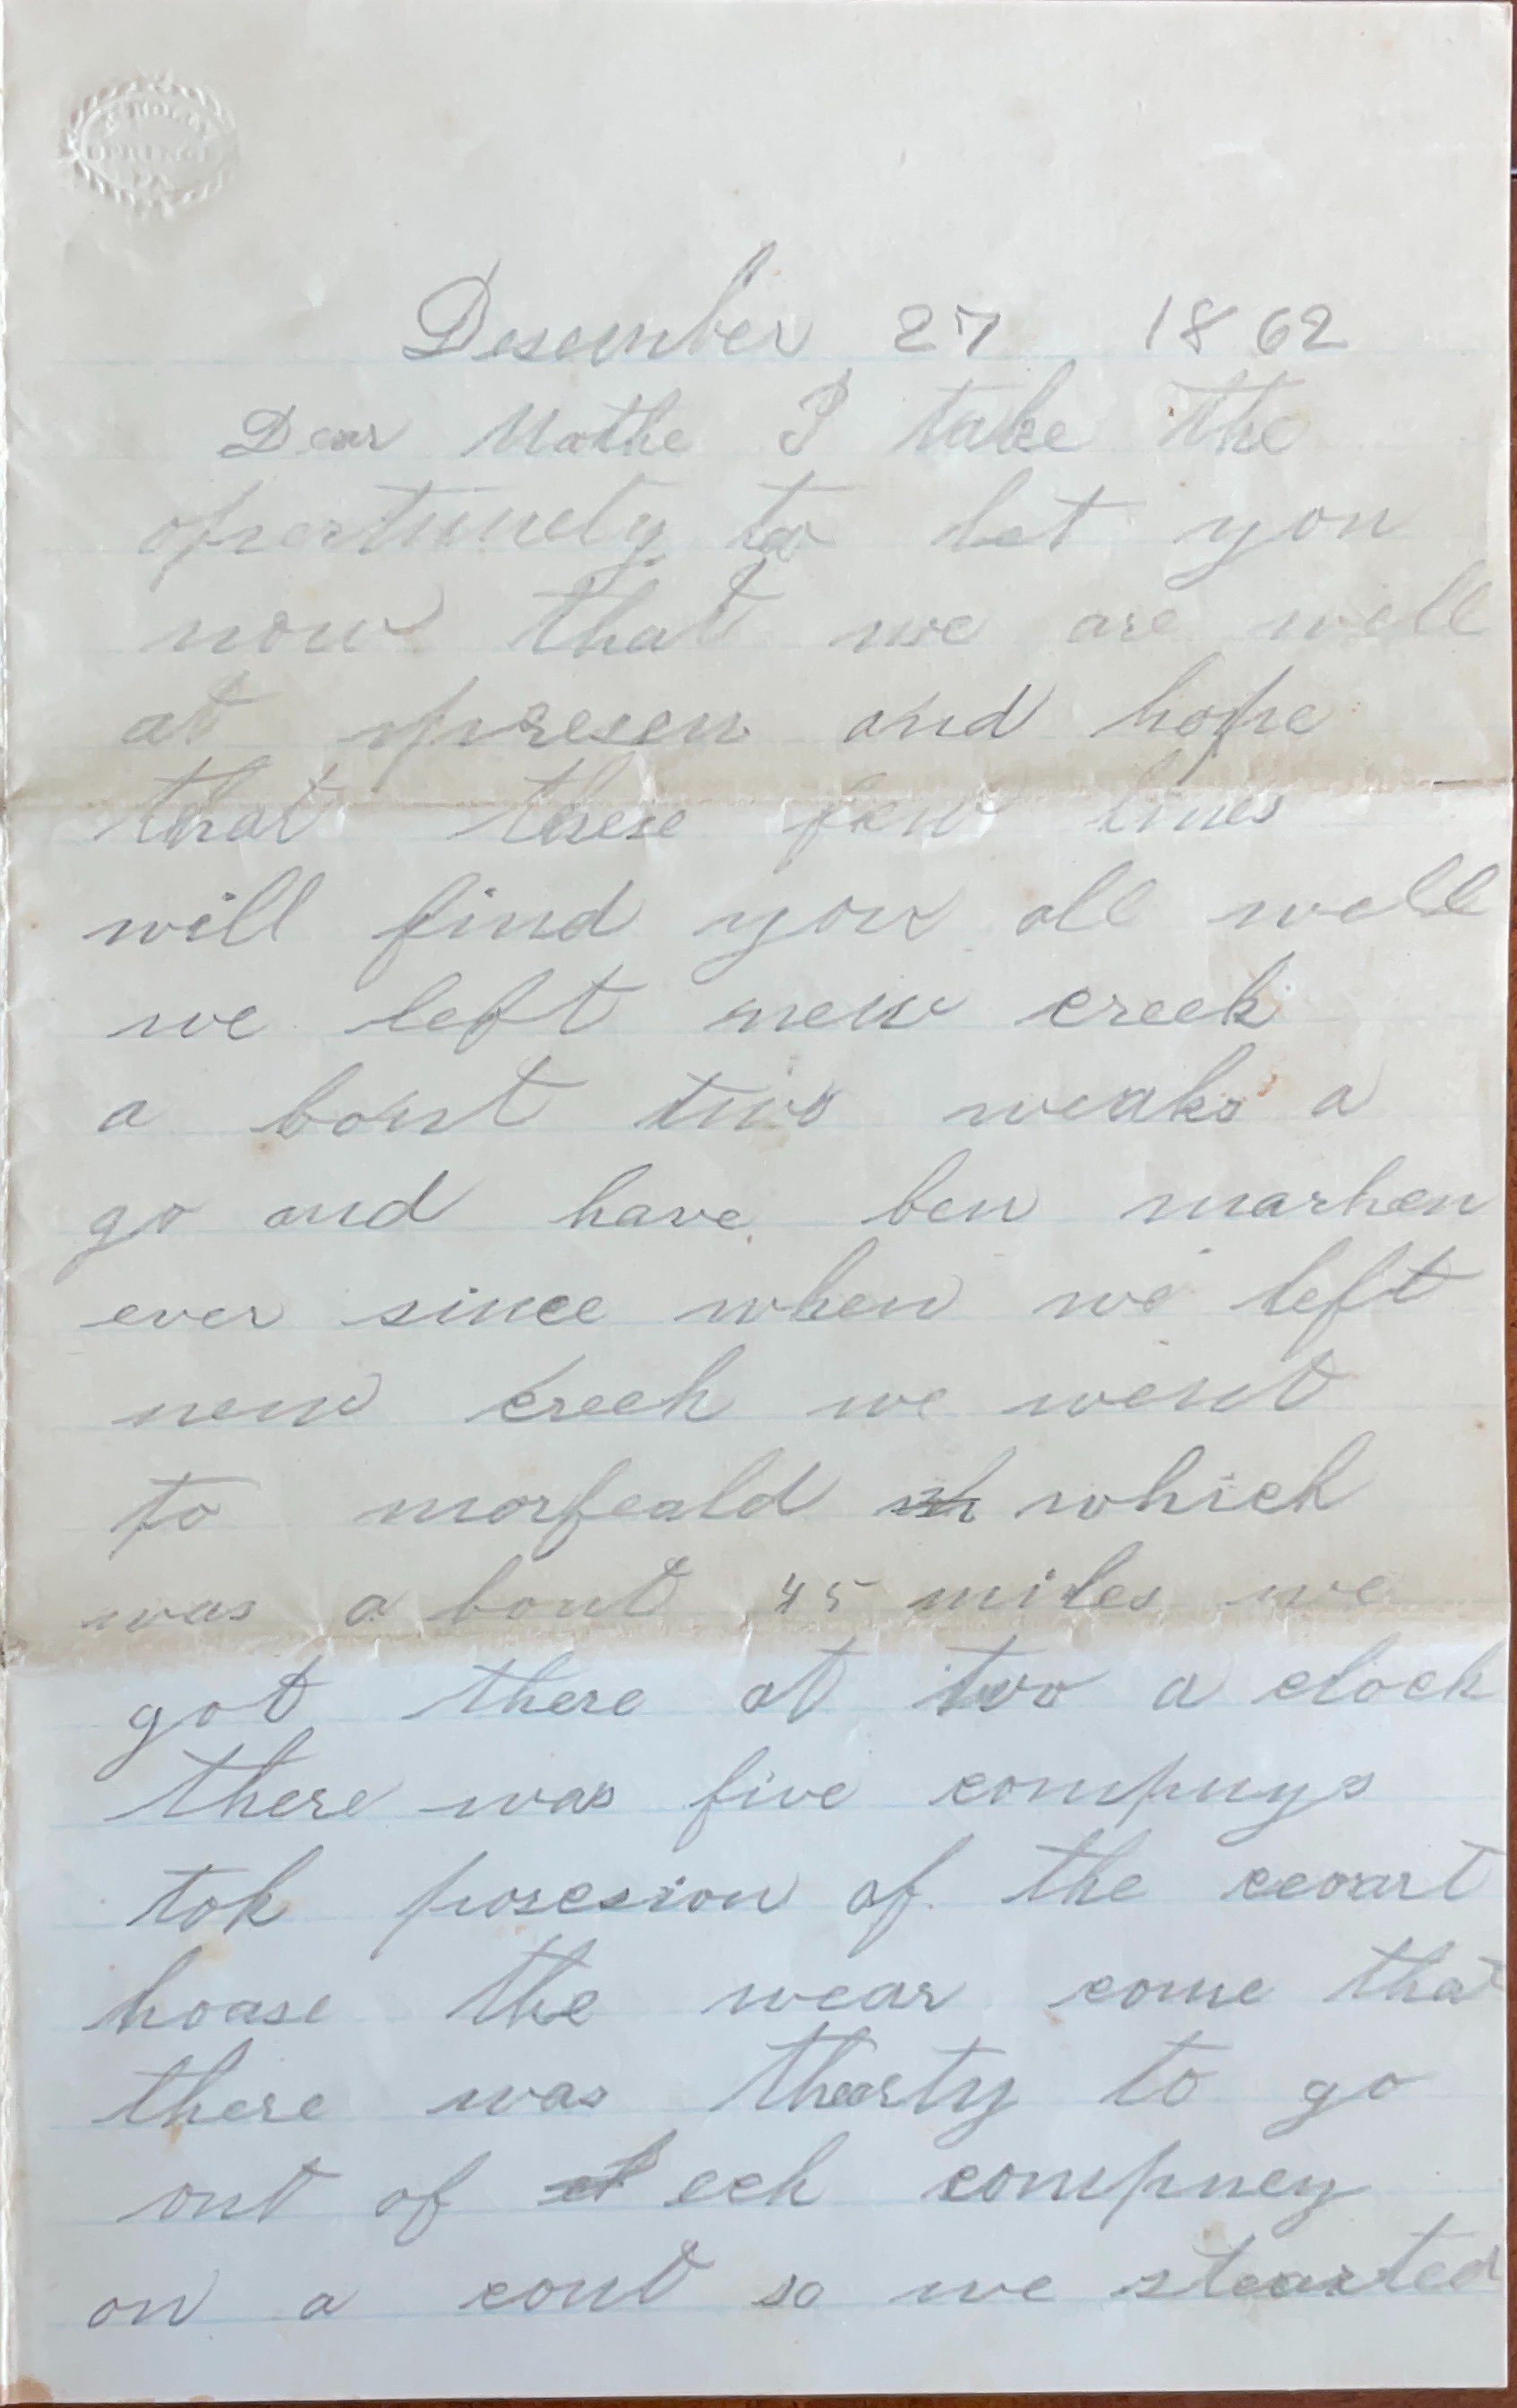 Mt HOLLY
SPRINGS
PA
Desember 27 1862
Dear Mothe I take the
opertunety to let you
now that we are well
at presen and hope
that these few lines
will find you all well
we left new creek
a bout two weaks a
go and have ben marhen
ever since when we left
new creek we went
to morfeald which
was a bout 45 miles we
got there at two a clock
there was five compnys
tok posesion of the
hoase the wear come that
there was thearty to go
out of ech compney
on a cout so we stearted